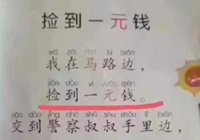 捡到一元钱
wǒ zài mǎ lù biān
我在马路边，
jiǎn dào yì yuán qián
捡到一元钱。
jiāo dào jǐng chá shū shu shǒu lǐ biān
交到警察叔叔手里边